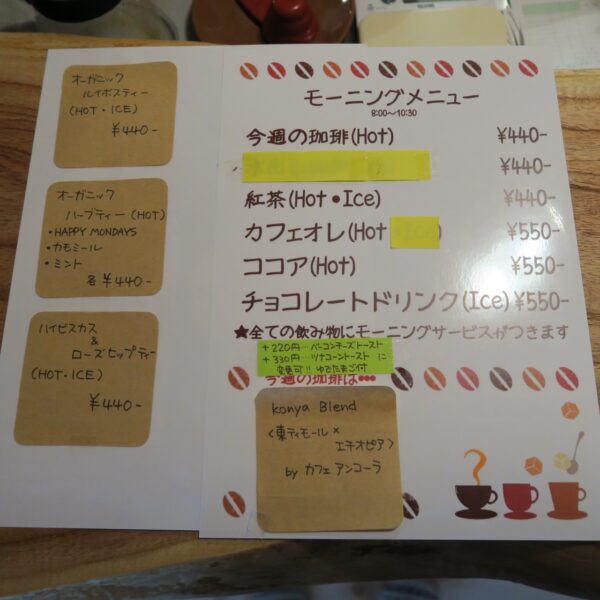 オーガニック
ルイボスティー
(HOT・ICE)
¥440-
オーガニック
ハーブティー (HOT)
・HAPPY MONDAYS
・カモミール
・ミント
各 ¥440-
ハイビスカス
&
ローズヒップティー
(HOT・ICE)
¥440-
モーニングメニュー
8:00〜10:30
今週の珈琲(Hot) ¥440-
¥440-
紅茶(Hot•Ice) ¥440-
カフェオレ(Hot ¥550-
ココア(Hot) ¥550-
チョコレートドリンク(Ice) ¥550-
★全ての飲み物にモーニングサービスがつきます
+220円…ベーコンチーズトースト
+330円…ツナコーントースト に
変更可!! ゆでたまご付
今週の珈琲は•••
Konya Blend
<東ティモール×
エチオピア>
by カフェ アンコーラ